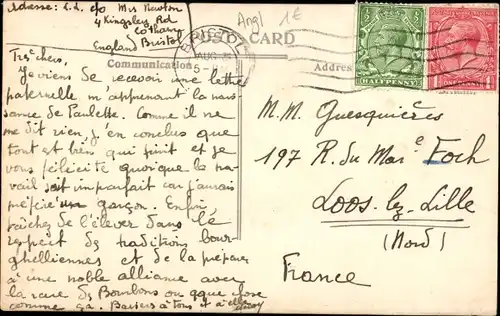 Adresse: L.L. c/o Mrs Newton
4 Kingsley Rd
Cotham
England Bristol
Angl 1€
POST CARD
Communication
Address
BRISTOL
AUG
5-
HALFPENNY
ONE PENNY
Très chers,
Je viens de recevoir une lettre
paternelle m'apprenant la nais
sance de Paulette. Comme il ne
me dit rien, j'en conclus que
tout est bien qui finit et je
vous félicite quoique le tra-
vail soit imparfait car j'aurais
préféré un garçon. Enfin
tâchez de l'élever dans le
respect des traditions bour-
ghelliennes et de la préparer
à une noble alliance avec
la race des Bourbons ou qque chose
comme ça. Baisers à tous et à elle
M.M. Guesquières
197 R. du Mar^e Foch
Loos-lez-Lille
(Nord)
France